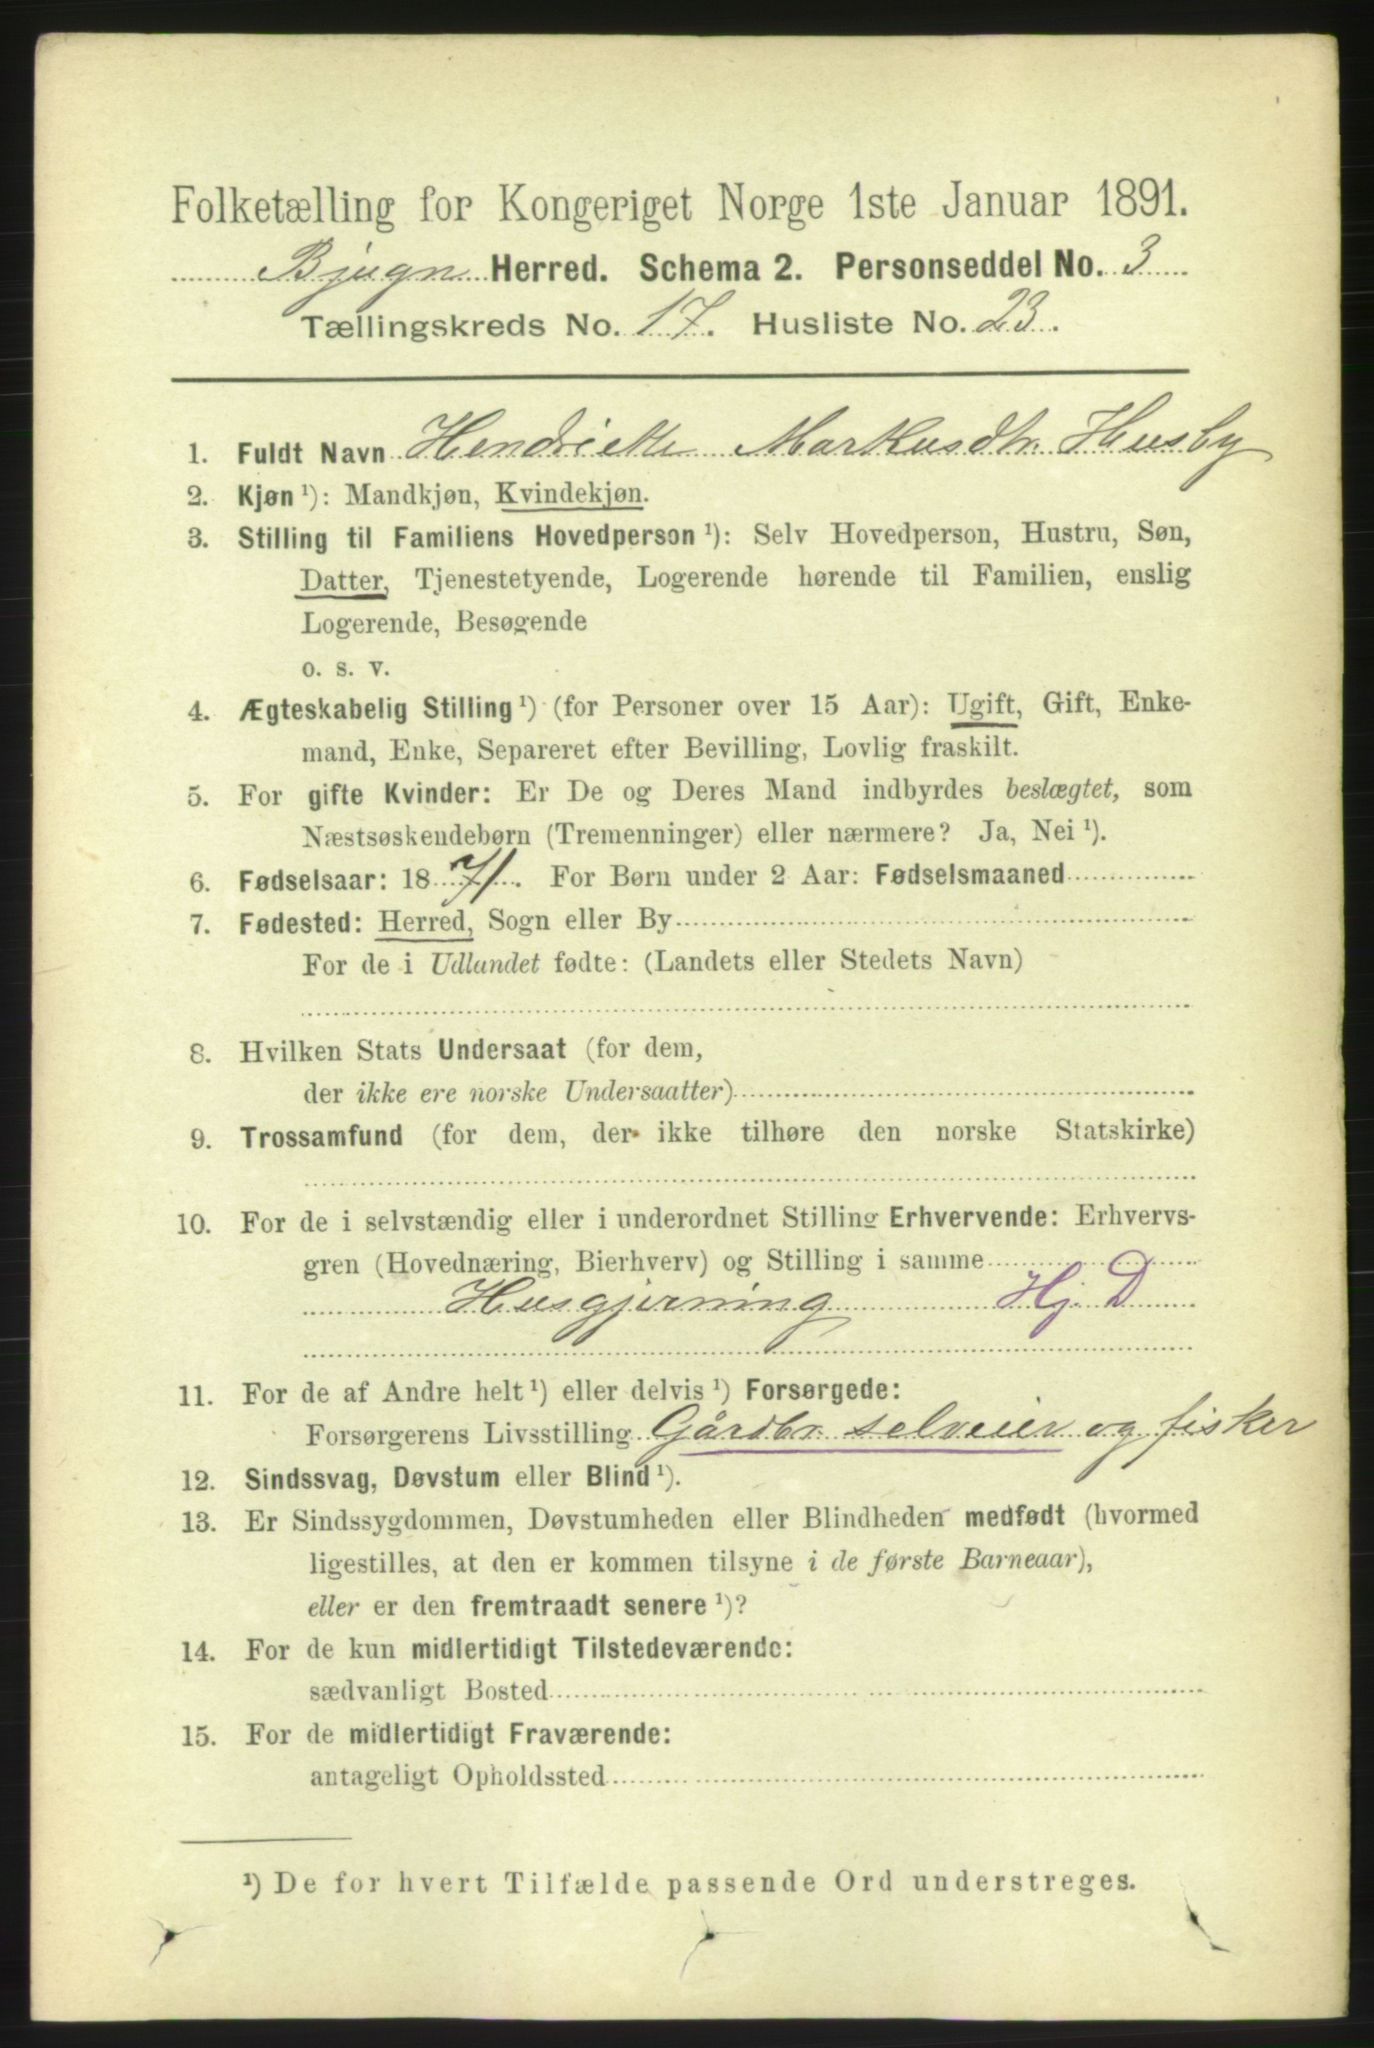 Folketælling for Kongeriget Norge 1ste Januar 1891.
Bjugn Herred. Schema 2. Personseddel No. 3
Tællingskreds No. 17. Husliste No. 23.
1. Fuldt Navn Hendrikke Markusdtr. Husby
2. Kjøn ¹): Mandkjøn, Kvindekjøn.
3. Stilling til Familiens Hovedperson ¹): Selv Hovedperson, Hustru, Søn,
Datter, Tjenestetyende, Logerende hørende til Familien, enslig
Logerende, Besøgende
o. s. v.
4. Ægteskabelig Stilling ¹) (for Personer over 15 Aar): Ugift, Gift, Enke-
mand, Enke, Separeret efter Bevilling, Lovlig fraskilt.
5. For gifte Kvinder: Er De og Deres Mand indbyrdes beslægtet, som
Næstsøskendebørn (Tremenninger) eller nærmere? Ja, Nei ¹).
6. Fødselsaar: 1871. For Børn under 2 Aar: Fødselsmaaned
7. Fødested: Herred, Sogn eller By
For de i Udlandet fødte: (Landets eller Stedets Navn)
8. Hvilken Stats Undersaat (for dem,
der ikke ere norske Undersaatter)
9. Trossamfund (for dem, der ikke tilhøre den norske Statskirke)
10. For de i selvstændig eller i underordnet Stilling Erhvervende: Erhvervs-
gren (Hovednæring, Bierhverv) og Stilling i samme
Husgjerning Hj. D
11. For de af Andre helt ¹) eller delvis ¹) Forsørgede:
Forsørgerens Livsstilling Gårdbr. selveier og fisker
12. Sindssvag, Døvstum eller Blind ¹).
13. Er Sindssygdommen, Døvstumheden eller Blindheden medfødt (hvormed
ligestilles, at den er kommen tilsyne i de første Barneaar),
eller er den fremtraadt senere ¹)?
14. For de kun midlertidigt Tilstedeværende:
sædvanligt Bosted
15. For de midlertidigt Fraværende:
antageligt Opholdssted
¹) De for hvert Tilfælde passende Ord understreges.